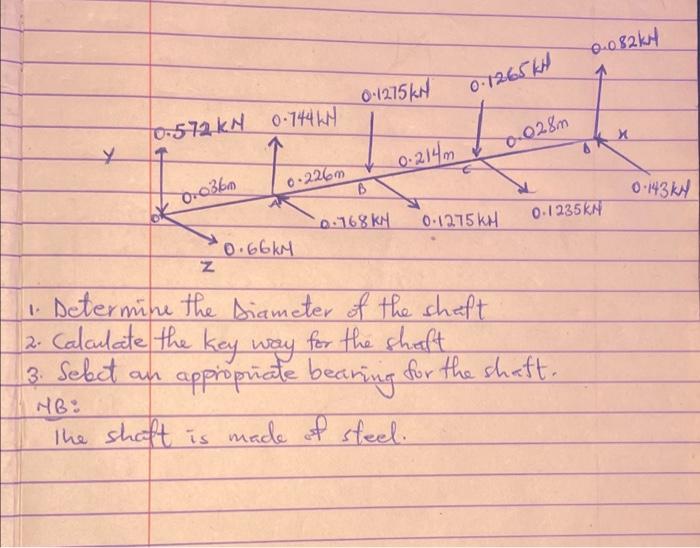 0.082kN
0.1265kN
0.1275kN
0.572kN 0.744kN
0.028m
Y
X
0.214m
0.226m
0.036m
O A B C D
0.143kN
0.768kN 0.1275kN 0.1235kN
0.66kN
Z
1. Determine the Diameter of the shaft
2. Calculate the key way for the shaft
3. Select an appropriate bearing for the shaft.
NB:
The shaft is made of steel.